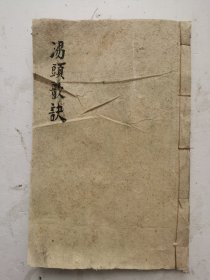 湯頭歌訣